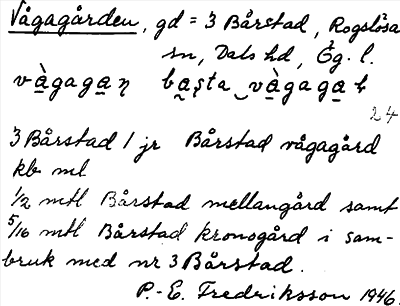 Vågagården, gd = 3 Bårstad, Rogslösa
sn, Dals hd, Ög. l.
24
3 Bårstad / jr Bårstad vågagård
kb ml
1/2 mtl Bårstad mellangård samt
5/16 mtl Bårstad kronogård i sam-
bruk med nr 3 Bårstad.
P.-E. Fredriksson 1946.